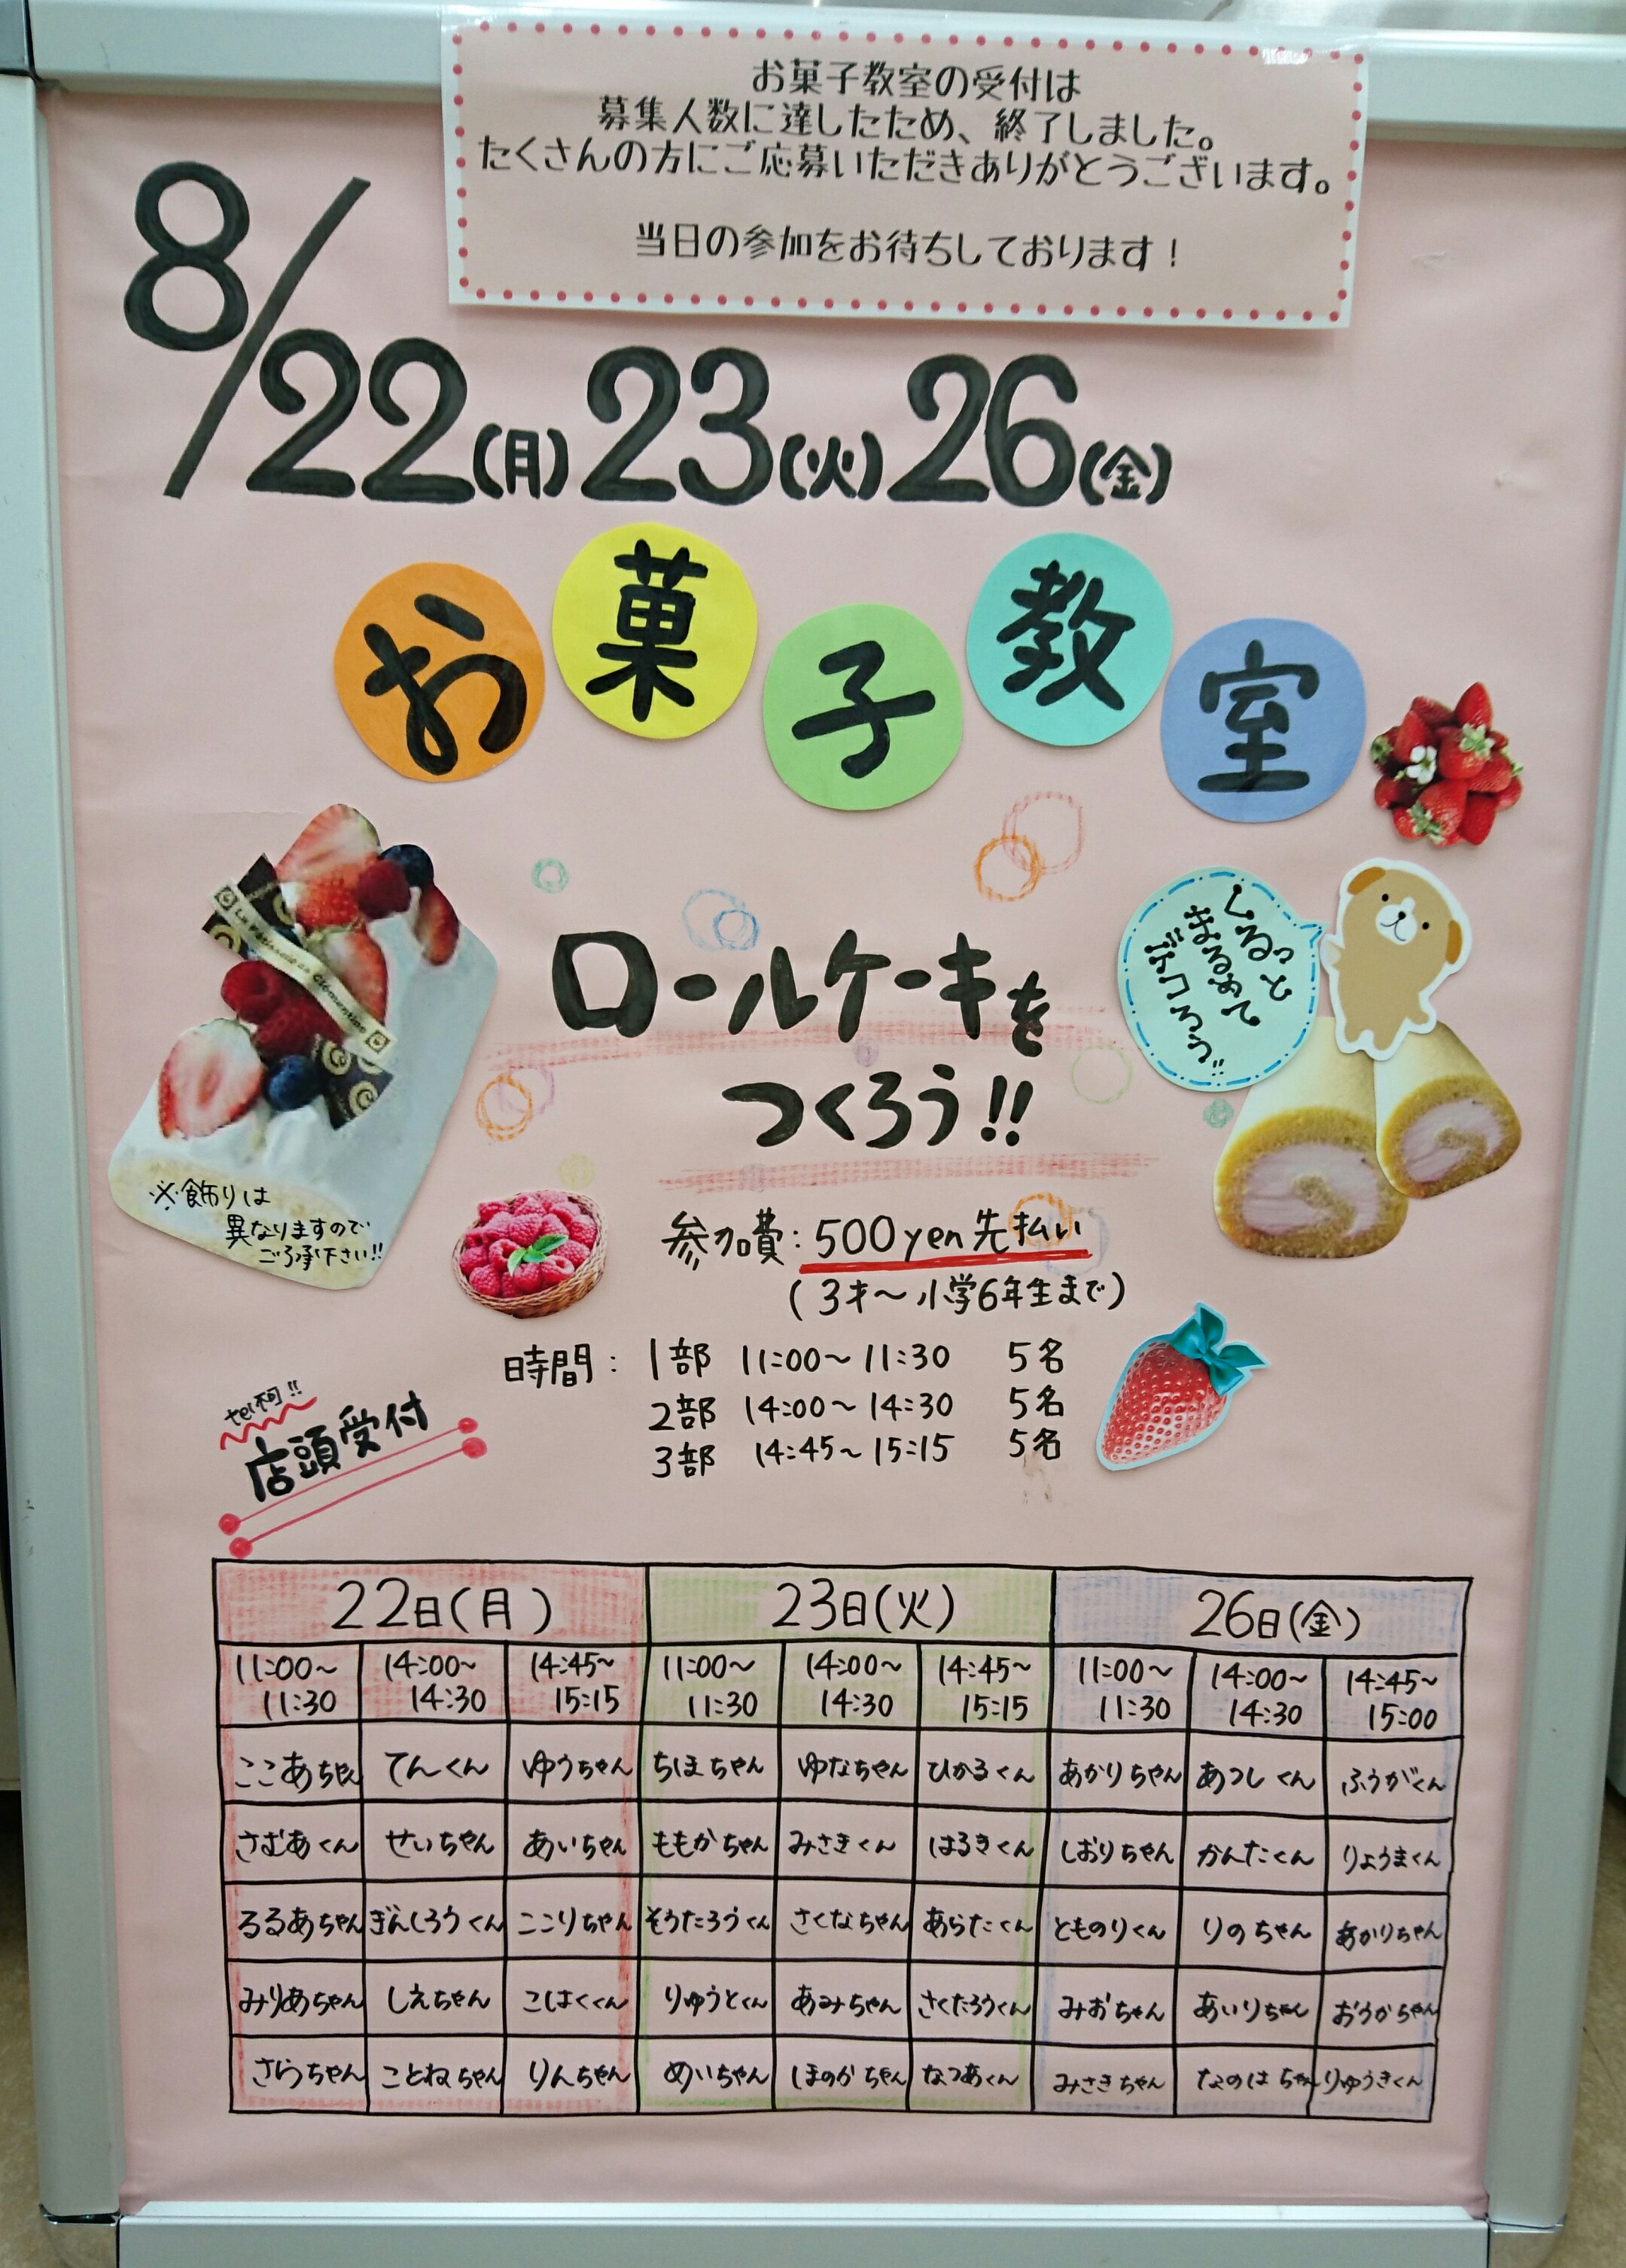 お菓子教室の受付は
募集人数に達したため、終了しました。
たくさんの方にご応募いただきありがとうございます。
当日の参加をお待ちしております！
8/22(月)23(火)26(金)
お菓子教室
くるっと
まるめて
ロールケーキを
つくろう!!
※飾りは
異なりますので
ご了承下さい!!
参加費:500yen先払い
(3才～小学6年生まで)
時間: 1部 11:00～11:30 5名
2部 14:00～14:30 5名
3部 14:45～15:15 5名
tel不可!!
店頭受付
22日(月) 23日(火) 26日(金)
11:00～11:30 14:00～14:30 14:45～15:15 11:00～11:30 14:00～14:30 14:45～15:15 11:00～11:30 14:00～14:30 14:45～15:00
ここあちゃん てんくん ゆうちゃん ちほちゃん ゆなちゃん ひかるくん あかりちゃん あつしくん ふうがくん
さむあくん せいちゃん あいちゃん ももかちゃん みさきくん はるきくん しおりちゃん かんたくん りょうまくん
るるあちゃん ぎんしろうくん ここりちゃん そうたろうくん さくなちゃん あらたくん とものりくん りのちゃん あかりちゃん
みりあちゃん しえちゃん こはくくん りゅうとくん あみちゃん さくたろうくん みおちゃん あいりちゃん おうかちゃん
さらちゃん ことねちゃん りんちゃん めいちゃん ほのかちゃん なつあくん みさきちゃん なのはちゃん りゅうきくん